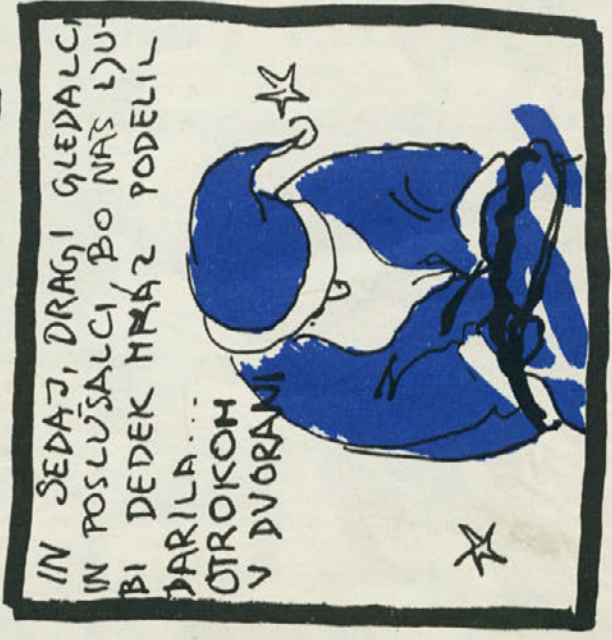 IN SEDAJ, DRAGI GLEDALCI
IN POSLUŠALCI, BO NAŠ LJU-
BI DEDEK MRAZ PODELIL
DARILA...
OTROKOM
V DVORANI